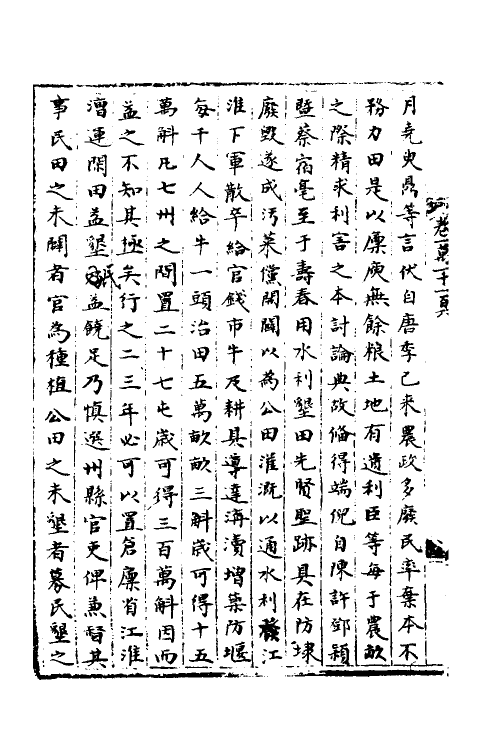 月堯叟鼎等言伏自唐季已來農政多廢民率棄本不
務力田是以廩庾無餘粮土地有遺利臣等每于農畝
之際精求利害之本討論典故備得端倪自陳許鄧潁
暨蔡宿亳至于壽春用水利墾田先賢聖跡具在防埭
廢毀遂成汚萊儻開闢以為公田灌溉以通水利發江
淮下軍散卒給官錢市牛及耕具導達溝瀆增築防堰
每千人人給牛一頭治田五萬畝畝三斛歲可得十五
萬斛凡七州之間置二十七屯歲可得三百萬斛因而
益之不知其極矣行之二三年必可以置倉廩省江淮
漕運閑田益墾民益饒足乃慎選州縣官吏俾兼督其
事民田之未闢者官為種植公田之未墾者募民墾之